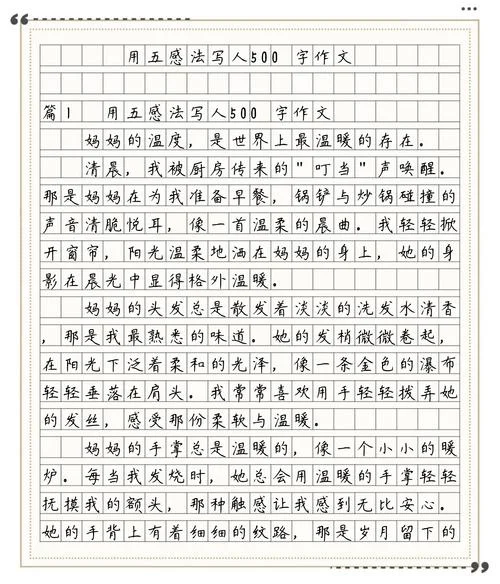 用五感法写人500 字作文
篇1 用五感法写人500 字作文
妈妈的温度，是世界上最温暖的存在.
清晨，我被厨房传来的"叮当"声唤醒.
那是妈妈在为我准备早餐，锅铲与炒锅碰撞的
声音清脆悦耳，像一首温柔的晨曲.我轻轻掀
开窗帘，阳光温柔地洒在妈妈的身上，她的身
影在晨光中显得格外温暖.
妈妈的头发总是散发着淡淡的洗发水清香
，那是我最熟悉的味道.她的发梢微微卷起，
在阳光下泛着柔和的光泽，像一条金色的瀑布
轻轻垂落在肩头.我常常喜欢用手轻轻拨弄她
的发丝，感受那份柔软与温暖.
妈妈的手掌总是温暖的，像一个小小的暖
炉.每当我发烧时，她总会用温暖的手掌轻轻
抚摸我的额头，那种触感让我感到无比安心.
她的手背上有着细细的纹路，那是岁月留下的